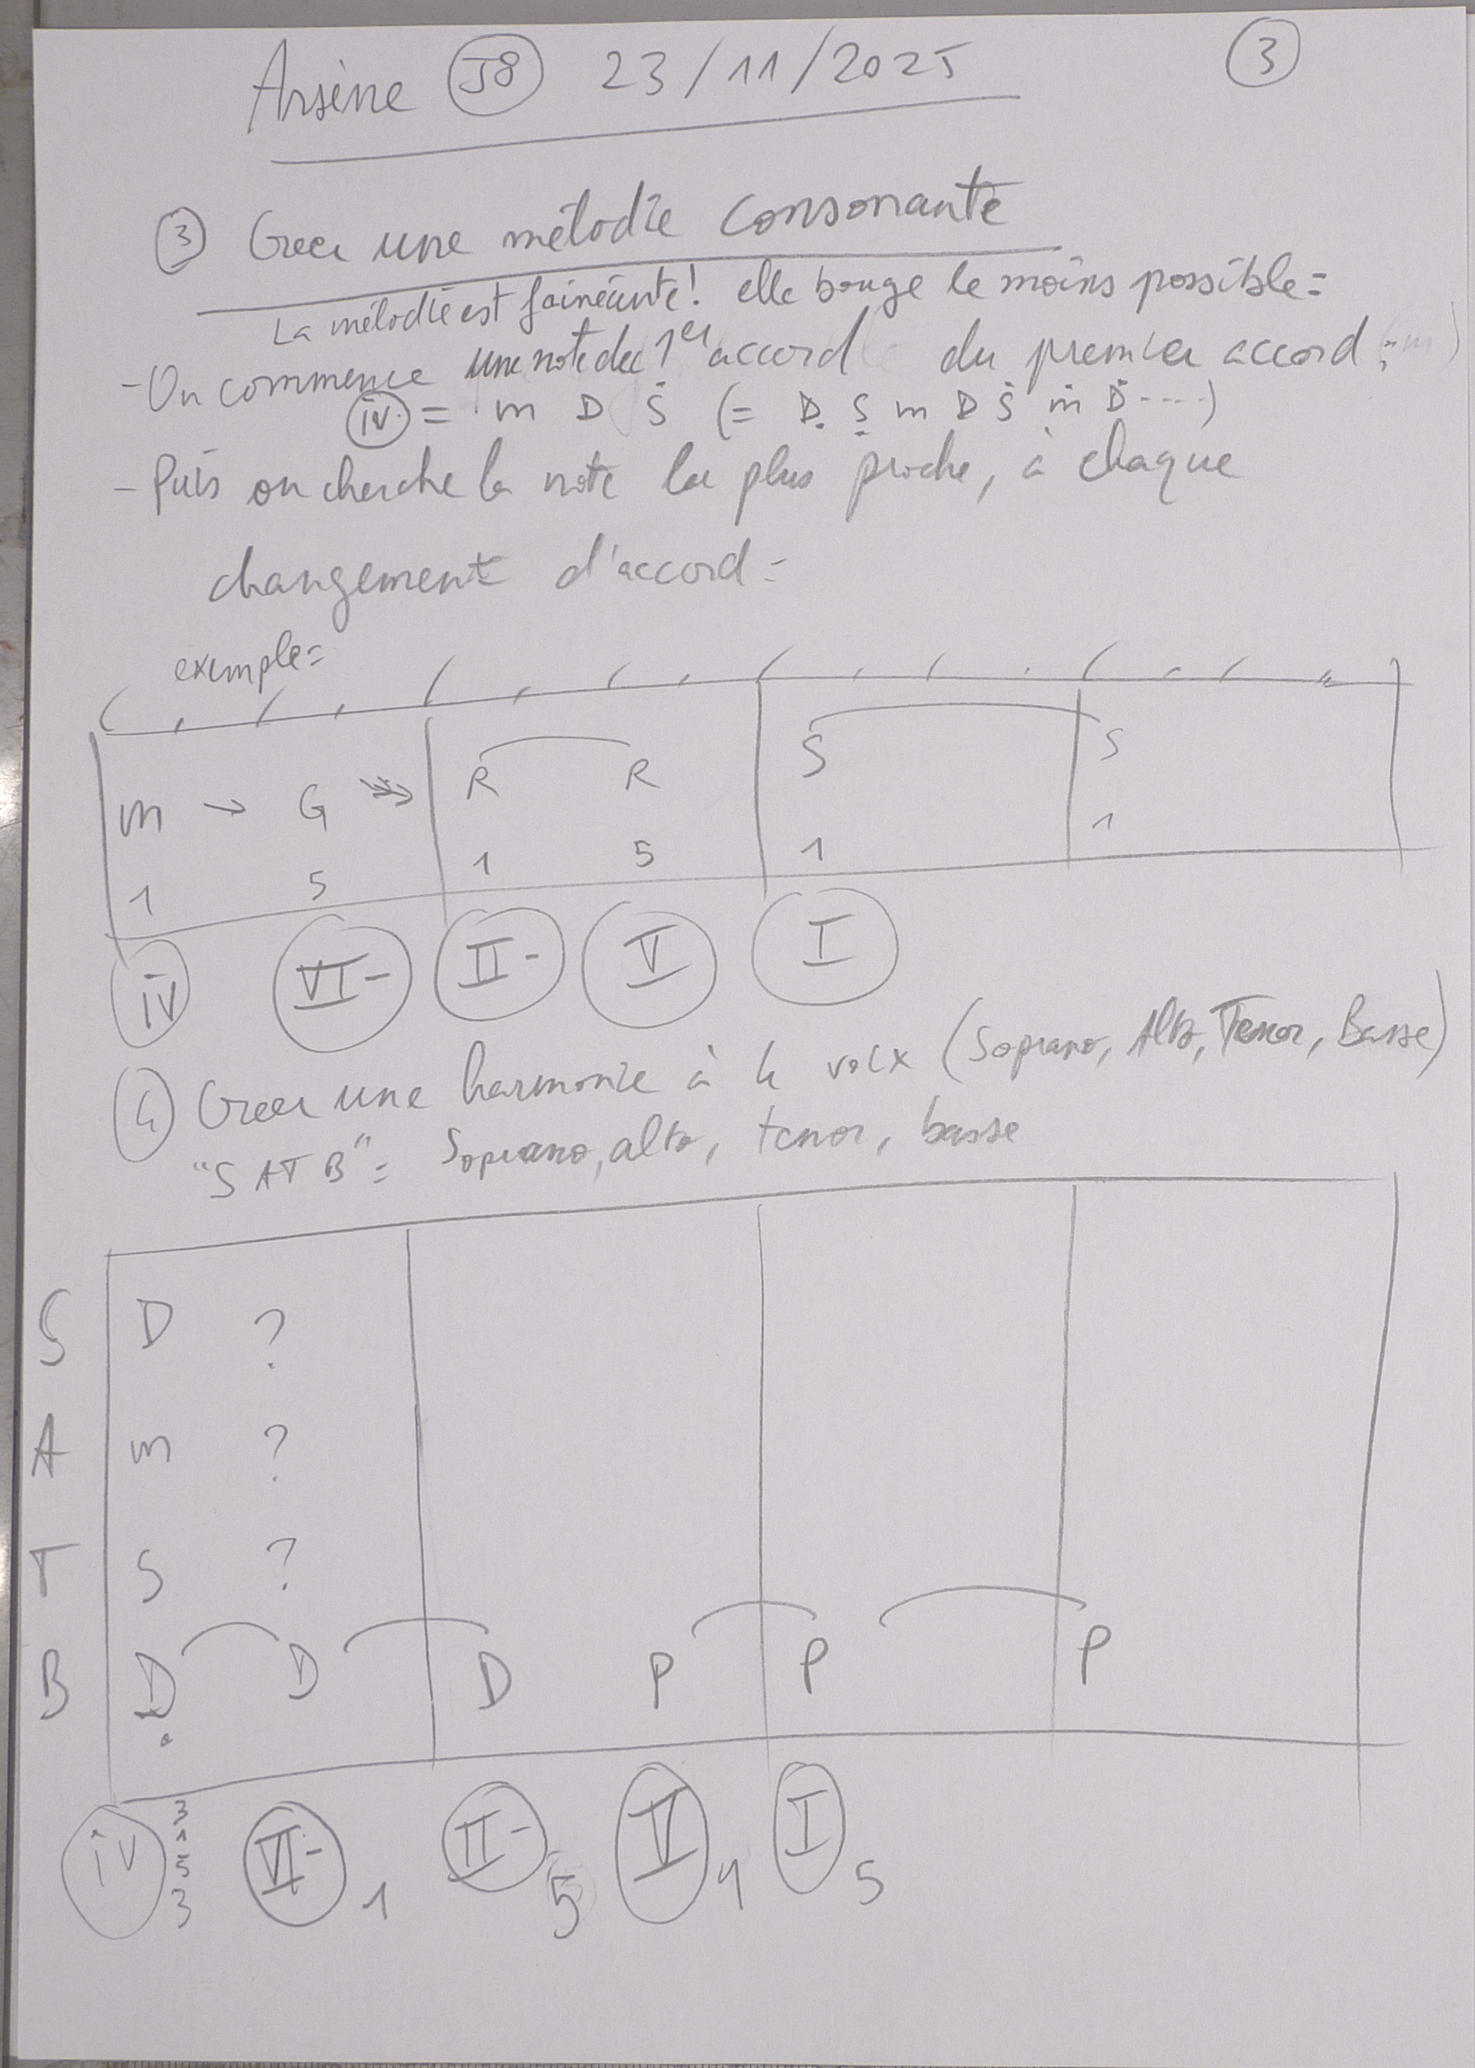 Arsène J8 23/11/2025 3
3 Créer une mélodie consonante
La mélodie est fainéante! elle bouge le moins possible=
-On commence une note du 1er accord du premier accord:
iv = m D S (= D S m D S m D ----)
- Puis on cherche la note la plus proche, à chaque
changement d'accord=
exemple=
m → G R R S S
1 5 1 5 1 1
iv VI- II- V I
4 Créer une harmonie à 4 voix (Soprano, Alto, Tenor, Basse)
"SATB"= Soprano, alto, tenor, basse
S D ?
A m ?
T S ?
B D D D P P P
iv 3 1 5 3 VI- 1 II- 5 V 1 I 5